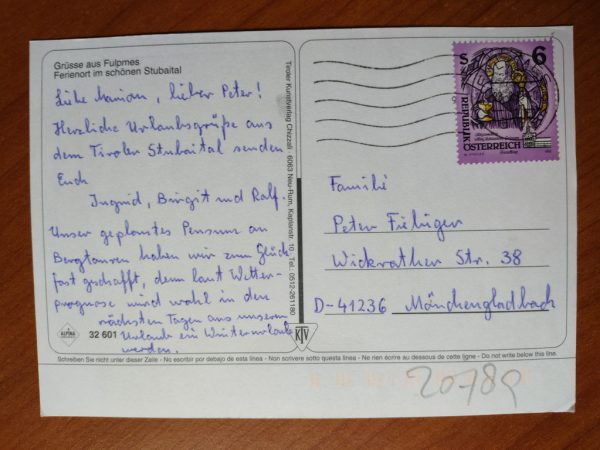 Grüsse aus Fulpmes
Ferienort im schönen Stubaital
Liebe Marion, lieber Peter!
Herzliche Urlaubsgrüße aus
dem Tiroler Stubaital senden
Euch
Ingrid, Birgit und Ralf.
Unser geplantes Pensum an
Bergtouren haben wir zum Glück
fast geschafft, denn laut Wetter-
prognose wird wohl in den
nächsten Tagen aus unserem
Urlaub ein Winterurlaub
werden.
ALPINA
32 601
Tiroler Kunstverlag Chizzali · 6063 Neu-Rum, Kaplanstr. 10, Tel. 0512-261180
KTV
S 6
REPUBLIK
ÖSTERREICH
Familie
Peter Fiebiger
Wickrather Str. 38
D-41236 Mönchengladbach
Schreiben Sie nicht unter dieser Zeile - No escribir por debajo de esta linea - Non scrivere sotto questa linea - Ne rien écrire au dessous de cette ligne - Do not write below this line.
20789